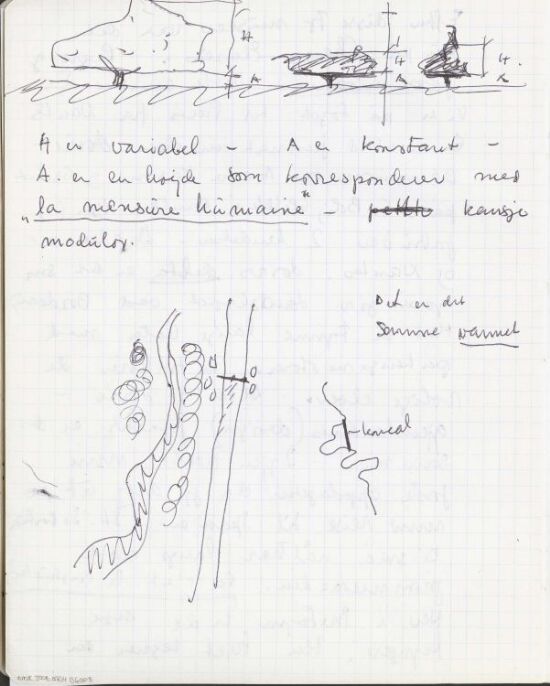 H
A
H
A
H
A
H er variabel – A er konstant –
A. er en højde som korresponderer med
"la mensure humaine" – kanskje
modulor.
Det er det
samme vannet
kanal